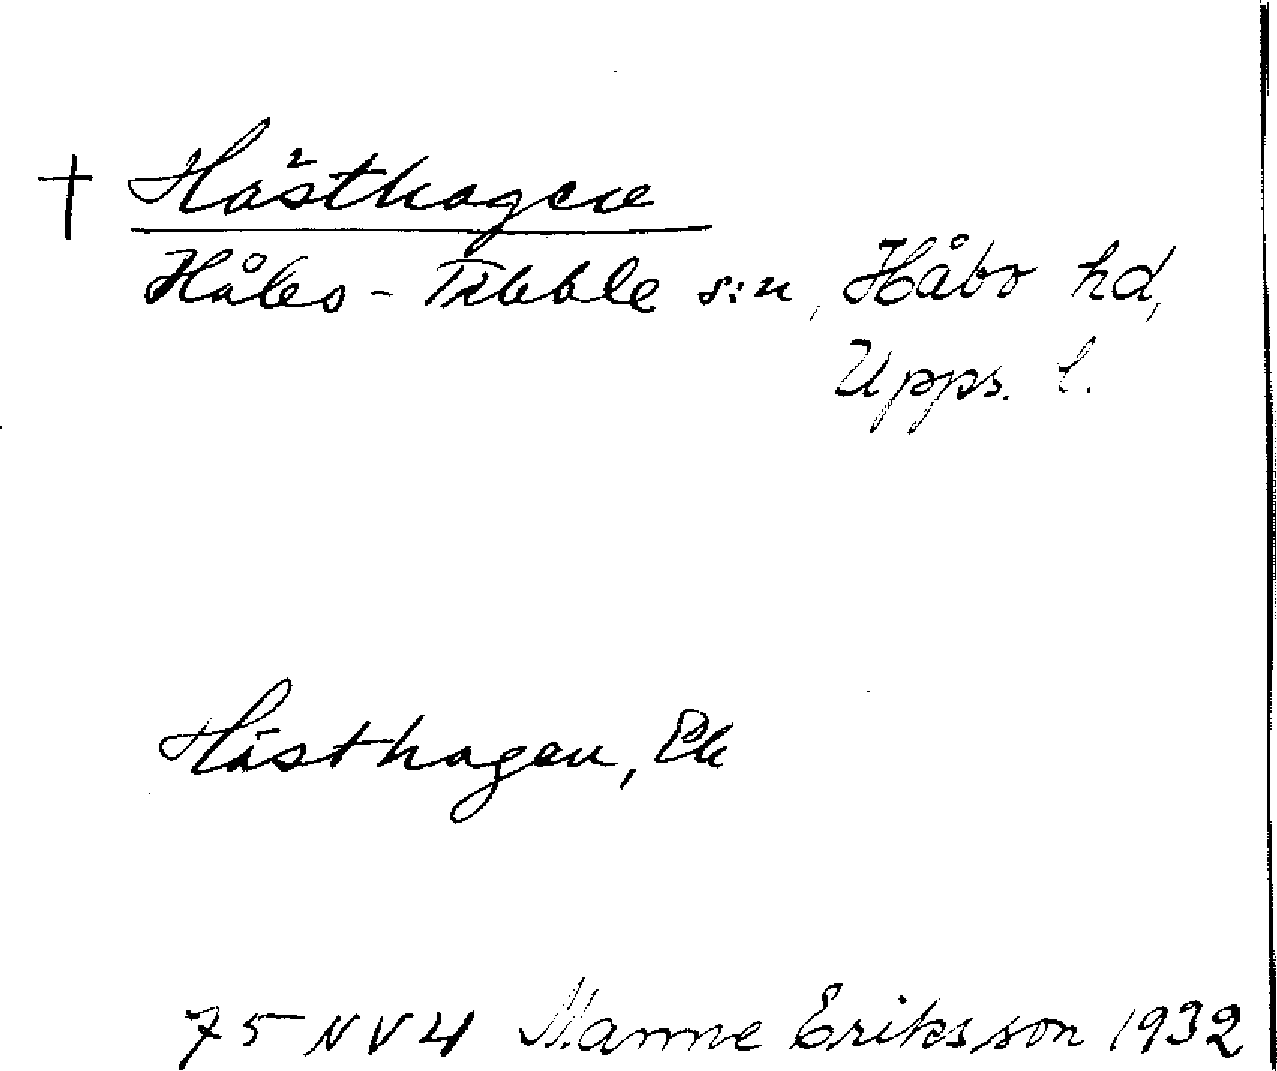 † Hästhagen
Håbo-Tibble s:n, Håbo hd,
Upps. l.
Hästhagen, Ek
75 NV 4 Manne Eriksson 1932